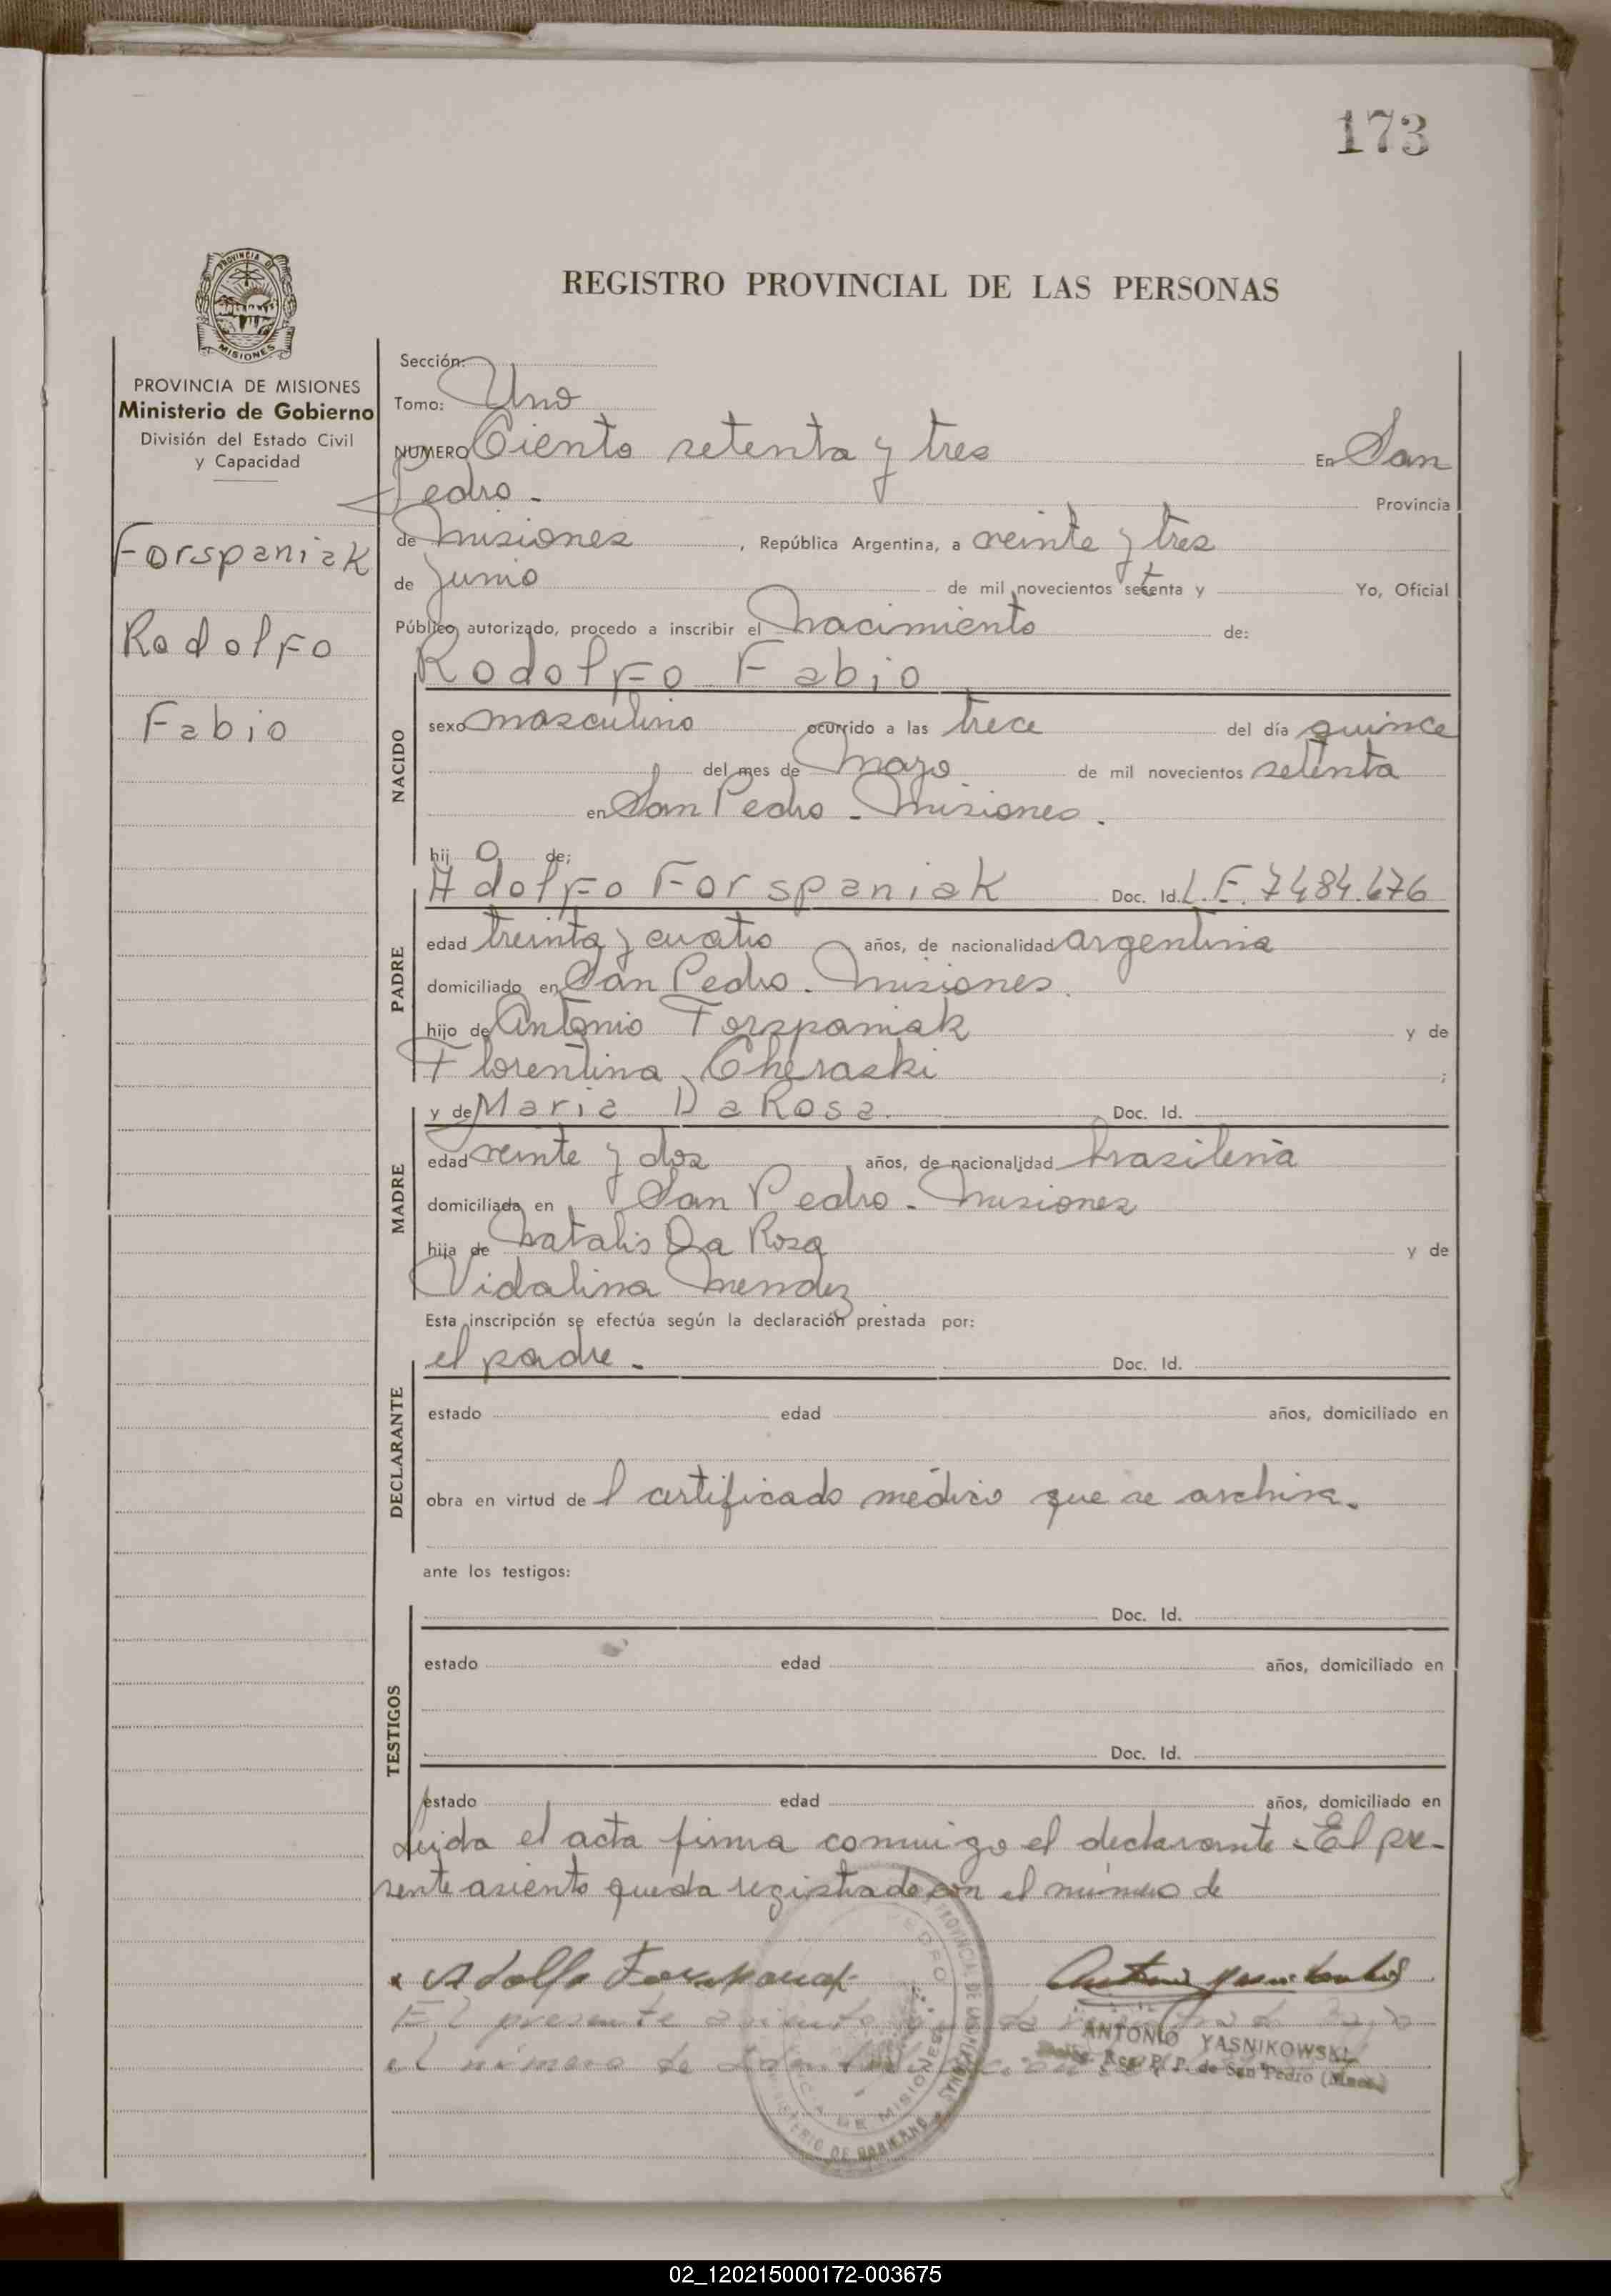 173
PROVINCIA DE
MISIONES
REGISTRO PROVINCIAL DE LAS PERSONAS
PROVINCIA DE MISIONES
Ministerio de Gobierno
División del Estado Civil
y Capacidad
Forspaniak
Rodolfo
Fabio
Sección:
Tomo: Uno
NUMERO Ciento setenta y tres En San
Pedro. Provincia
de Misiones , República Argentina, a veinte y tres
de junio de mil novecientos setenta y Yo, Oficial
Público autorizado, procedo a inscribir el Nacimiento de:
Rodolfo Fabio
NACIDO
sexo masculino ocurrido a las trece del día quince
del mes de Mayo de mil novecientos setenta
en San Pedro - Misiones.
hij o de:
PADRE
Adolfo Forspaniak Doc. Id. L.E. 7484.676
edad treinta y cuatro años, de nacionalidad argentina
domiciliado en San Pedro - Misiones.
hijo de Antonio Forspaniak y de
Florentina Cheraski ;
MADRE
y de Maria Da Rosa. Doc. Id.
edad veinte y dos años, de nacionalidad brasileña
domiciliada en San Pedro - Misiones
hija de Natalis Da Rosa y de
Vidalina Mendez
Esta inscripción se efectúa según la declaración prestada por:
DECLARANTE
el padre. Doc. Id.
estado edad años, domiciliado en
obra en virtud de l certificado médico que se archiva.
ante los testigos:
TESTIGOS
Doc. Id.
estado edad años, domiciliado en
Doc. Id.
estado edad años, domiciliado en
Leida el acta firma conmigo el declarante. El pre-
sente asiento queda registrado con el número de
Adolfo Forspaniak
El presente asiento queda bajo
el número de
ANTONIO YASNIKOWSKI
de San Pedro (Mnes.)
MINISTERIO DE GOBIERNO
02_120215000172-003675